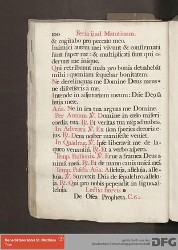 100 Feria ij ad Matutinum.
& cogitabo pro peccato meo.
Inimici autem mei vivunt & confirmati
sunt super me: & multiplicati sunt qui o-
derunt me inique.
Qui retribuunt mala pro bonis detrahebāt
mihi: quoniam sequebar bonitatem.
Ne derelinquas me Domine Deus meus:
ne discesseris a me.
Intende in adjutorium meum: Dñe Deus
Aña. Ne in ira tua arguas me Domine.
Per Annum. V. Domine in cælo miseri
cordia tua. R. Et veritas tua usq; ad nubes.
In Adventu. V. Ex Sion species decoris e-
jus. R. Deus noster manifeste veniet.
In Quadrag. V. Ipse liberavit me de la-
queo venantiū. R. Et a verbo aspero.
Temp. Passionis. V. Erue a framea Deus
animā meā. R. Et de manu canis unicā meā.
Temp. Pasch. Aña. Alleluia, alleluia, allelu-
ia. V. Surrexit Dñus de sepulchro, allelu-
ia. R. Qui pro nobis pependit in ligno, al-
leluia. Lectio brevis
De Osea Propheta. C. 6.